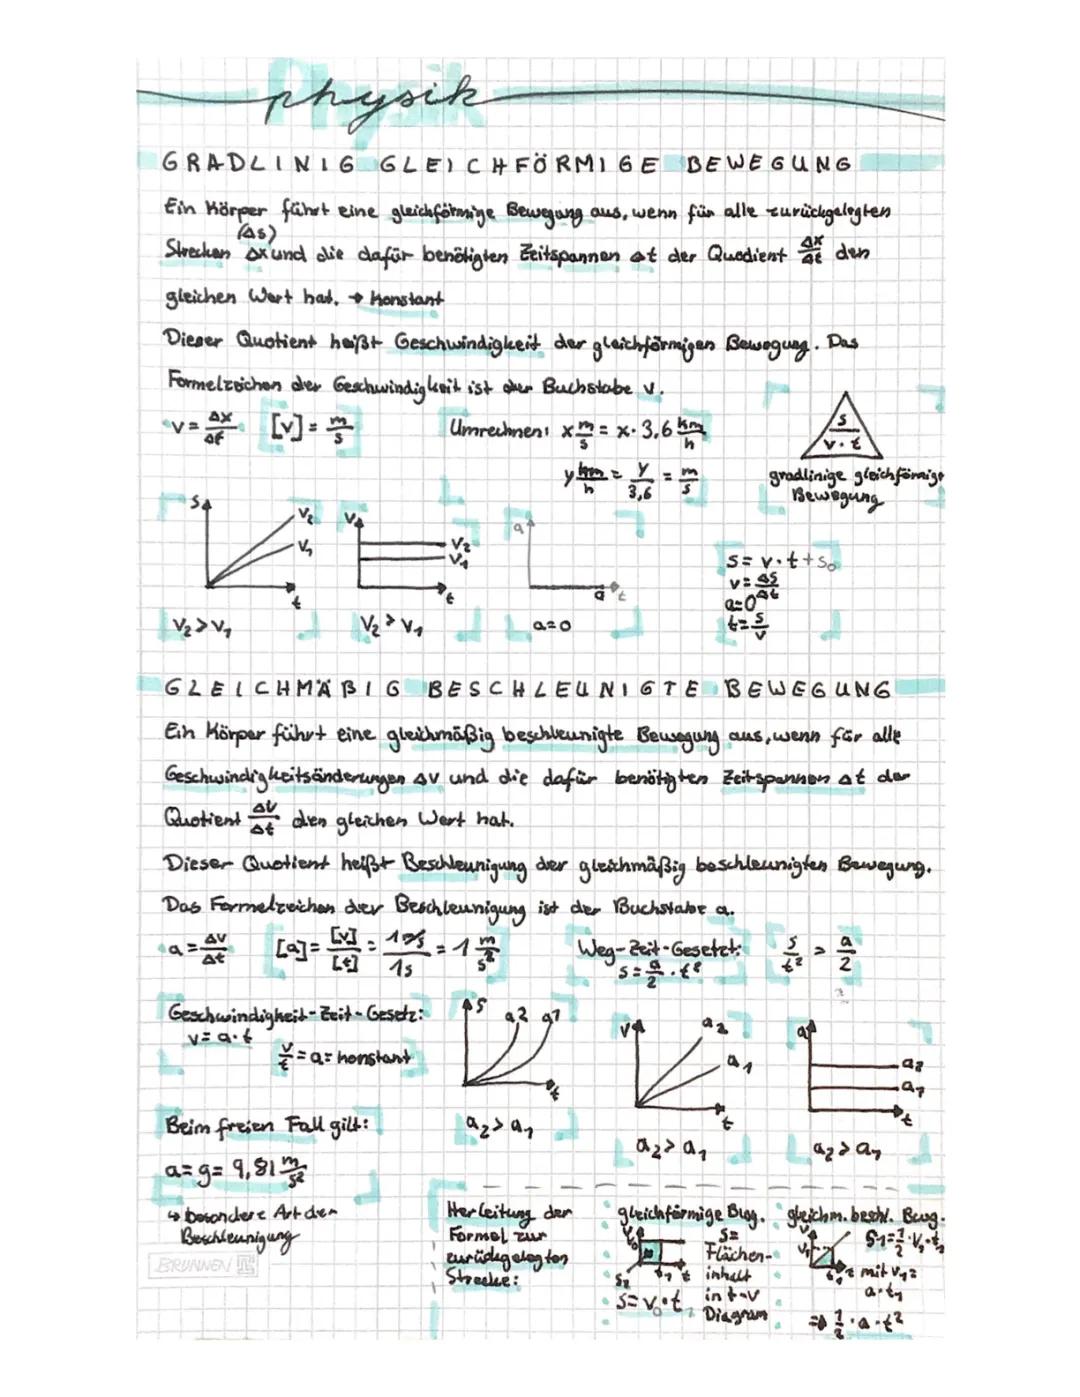 Physik
physik
GRADLINIG GLEICHFÖRMIGE BEWEGUNG
Ein Körper führt eine gleichförmige Bewegung aus, wenn für alle zurückgelegten
(Δs)
Strecken Δx und die dafür benötigten Zeitspannen Δt der Quodient Δx/Δt den
gleichen Wert hat. → Konstant
Dieser Quotient heißt Geschwindigkeit der gleichförmigen Bewegung. Das
Formelzeichen der Geschwindigkeit ist der Buchstabe v.
v = Δx/Δt [v] = m/s Umrechnen: x m/s = x · 3,6 km/h
y km/h = y/3,6 = m/s
s
v · t
gradlinige gleichförmige
Bewegung
s v₂ v₁ t
v₂ > v₁
v v₂ v₁ t
v₂ > v₁
a a t
a=0
s = v · t + s₀
v = Δs/Δt
a=0
t = s/v
GLEICHMÄßIG BESCHLEUNIGTE BEWEGUNG
Ein Körper führt eine gleichmäßig beschleunigte Bewegung aus, wenn für alle
Geschwindigkeitsänderungen Δv und die dafür benötigten Zeitspannen Δt der
Quotient Δv/Δt den gleichen Wert hat.
Dieser Quotient heißt Beschleunigung der gleichmäßig beschleunigten Bewegung.
Das Formelzeichen der Beschleunigung ist der Buchstabe a.
a = Δv/Δt [a] = [v]/[t] = 1 m/s / 1s = 1 m/s² Weg-Zeit-Gesetzt: s/t² = a/2
s = a/2 · t²
Geschwindigkeit-Zeit-Gesetz:
v = a · t
v/t = a = konstant
s a2 a1 t
a₂ > a₁
v a₂ a₁ t
a₂ > a₁
a a₂ a₁ t
a₂ > a₁
Beim freien Fall gilt:
a = g = 9,81 m/s²
↳ besondere Art der
Beschleunigung
BRUNNEN
Herleitung der
Formel zur
zurückgelegten
Strecke:
gleichförmige Bwg.
s=
Flächen-
inhalt
in t-v
Diagram
v₀ t₁ t
s = v₀ · t₁
gleichm. beschl. Bewg.
s₁ = 1/2 · v₁ · t₁
mit v₁ =
a · t₁
⇒ 1/2 · a · t²